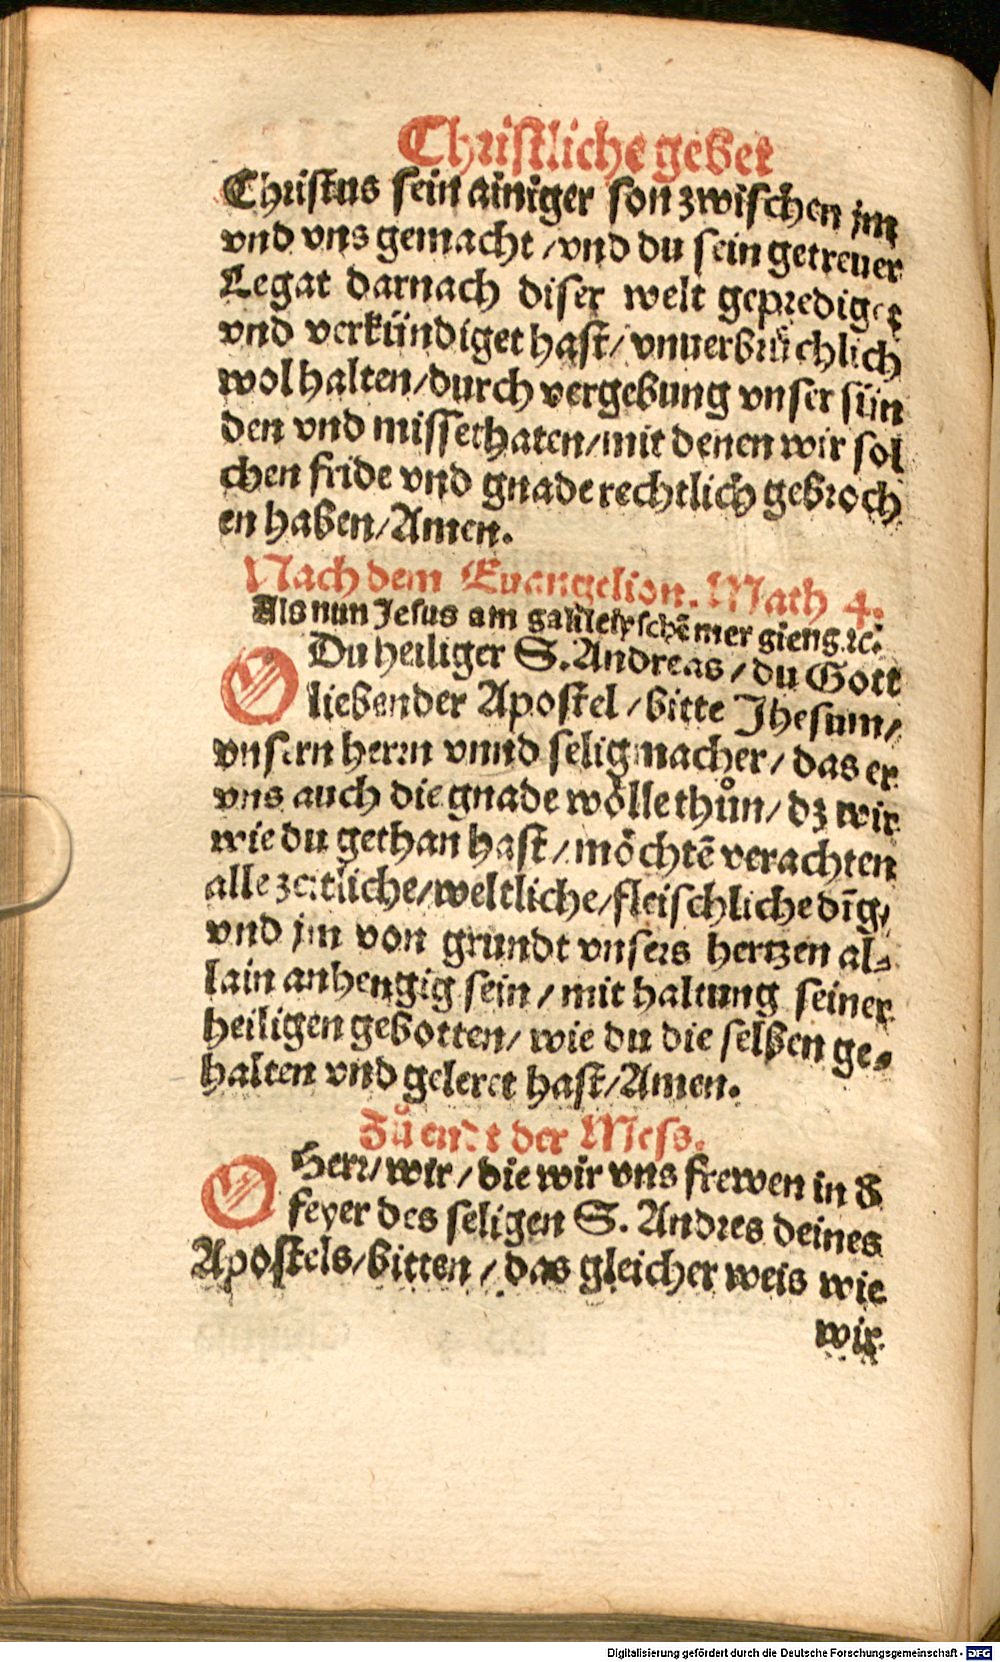 Christliche gebet
Christus sein ainiger son zwischen jm
vnd vns gemacht /vnd du sein getreuer
Legat darnach diser welt geprediget
vnd verkündiget hast/ vnuerbrüchlich
wol halten/durch vergebung vnser sün
den vnd missethaten/mit denen wir sol
chen fride vnd gnade rechtlich gebroch
en haben/Amen.
Nach dem Euangelion. Math 4.
Als nun Jesus am galileyschē mer gieng ꝛc.
O Du heiliger S. Andreas / du Gott
liebender Apostel / bitte Jhesum/
vnsern herrn vnnd seligmacher/ das er
vns auch die gnade wölle thůn/ dz wir
wie du gethan hast / möchtē verachten
alle zeitliche/weltliche/fleischliche dīg/
vnd jm von grundt vnsers hertzen al⸗
lain anhengig sein / mit haltung seiner
heiligen gebotten/ wie du die selben ge⸗
halten vnd geleret hast/Amen.
Zů endt der Mess.
O Herr/ wir / die wir vns frewen in d
feyer des seligen S. Andres deines
Apostels/bitten / das gleicher weis wie
wir
Digitalisierung gefördert durch die Deutsche Forschungsgemeinschaft - DFG